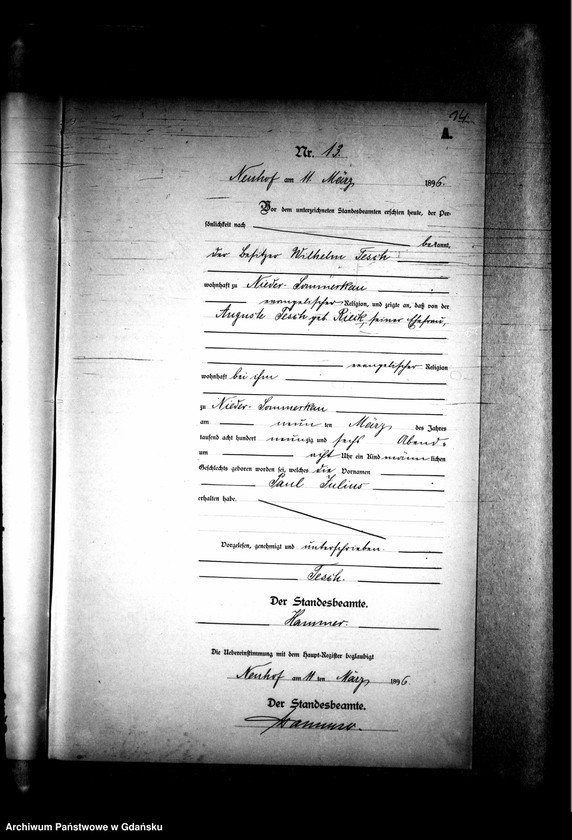 14.
A.
Nr. 13.
Neuhof am 11. März 1896.
Vor dem unterzeichneten Standesbeamten erschien heute, der Per-
sönlichkeit nach
bekannt,
der Besitzer Wilhelm Tesch
wohnhaft zu Nieder-Sommerkau
evangelischer Religion, und zeigte an, daß von der
Auguste Tesch geb. Rieck, seiner Ehefrau,
evangelischer Religion
wohnhaft bei ihm
zu Nieder-Sommerkau
am neun ten März des Jahres
tausend acht hundert neunzig und sechs Abend-
um acht Uhr ein Kind männlichen
Geschlechts geboren worden sei, welches die Vornamen
Paul Julius
erhalten habe.
Vorgelesen, genehmigt und unterschrieben.
Tesch.
Der Standesbeamte.
Hammer.
Die Uebereinstimmung mit dem Haupt-Register beglaubigt
Neuhof am 11 ten März 1896.
Der Standesbeamte.
Hammer.
Archiwum Państwowe w Gdańsku